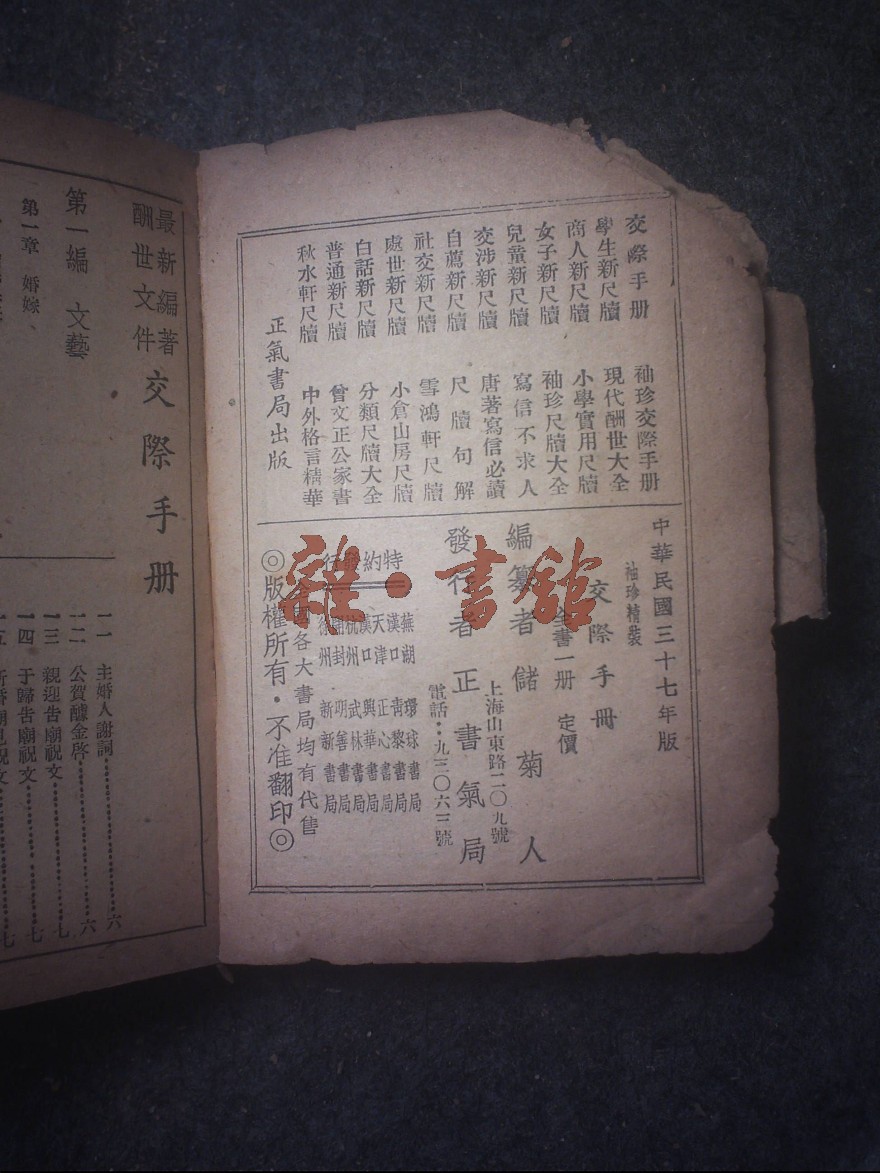 交際手册
學生新尺牘
商人新尺牘
女子新尺牘
兒童新尺牘
交涉新尺牘
自薦新尺牘
社交新尺牘
處世新尺牘
白話新尺牘
普通新尺牘
秋水軒尺牘
袖珍交際手册
現代酬世大全
小學實用尺牘
袖珍尺牘大全
寫信不求人
唐著寫信必讀
尺牘句解
雪鴻軒尺牘
小倉山房尺牘
分類尺牘大全
曾文正公家書
中外格言精華
正氣書局出版
中華民國三十七年版
袖珍精裝
交際手册
全書一册 定價
編纂者 儲菊人
上海山東路二〇九號
發行者 正氣書局
電話：九三〇六三號
特約發行
蕪湖 環球書局
漢口 青黎書局
天津 正心書局
漢口 興華書局
杭州 武林書局
開封 明善書局
徐州 新新書局
全國各大書局均有代售
◎版權所有·不准翻印◎
雜·書館
最新編著
酬世文件
交際手册
第一編 文藝
第一章 婚嫁
一一 主婚人謝詞 六
一二 公賀醵金啓 六
一三 親迎告廟祝文 七
一四 于歸告廟祝文 七